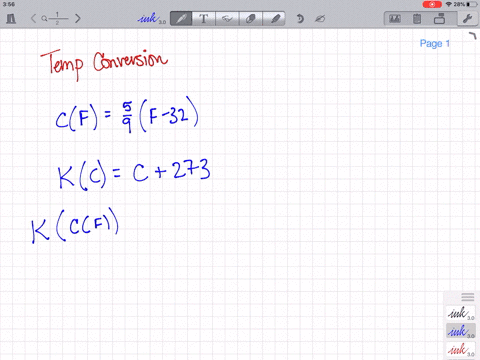 3:56
28%
1/2
ink 3.0
T
Page 1
Temp Conversion
C(F) = 5/9 (F-32)
K(C) = C + 273
K(C(F))
ink 3.0
ink 3.0
ink 3.0